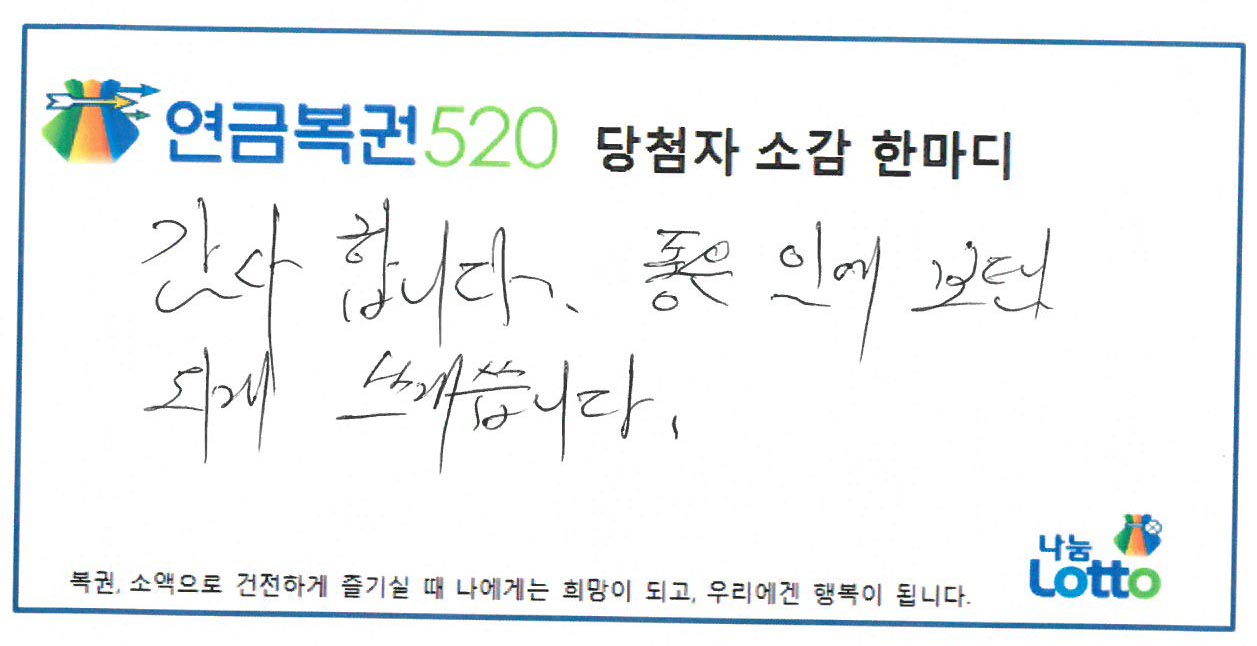 연금복권520 당첨자 소감 한마디
감사 합니다. 좋은 일에 보탬
되게 쓰게씁니다.
나눔
Lotto
복권, 소액으로 건전하게 즐기실 때 나에게는 희망이 되고, 우리에겐 행복이 됩니다.